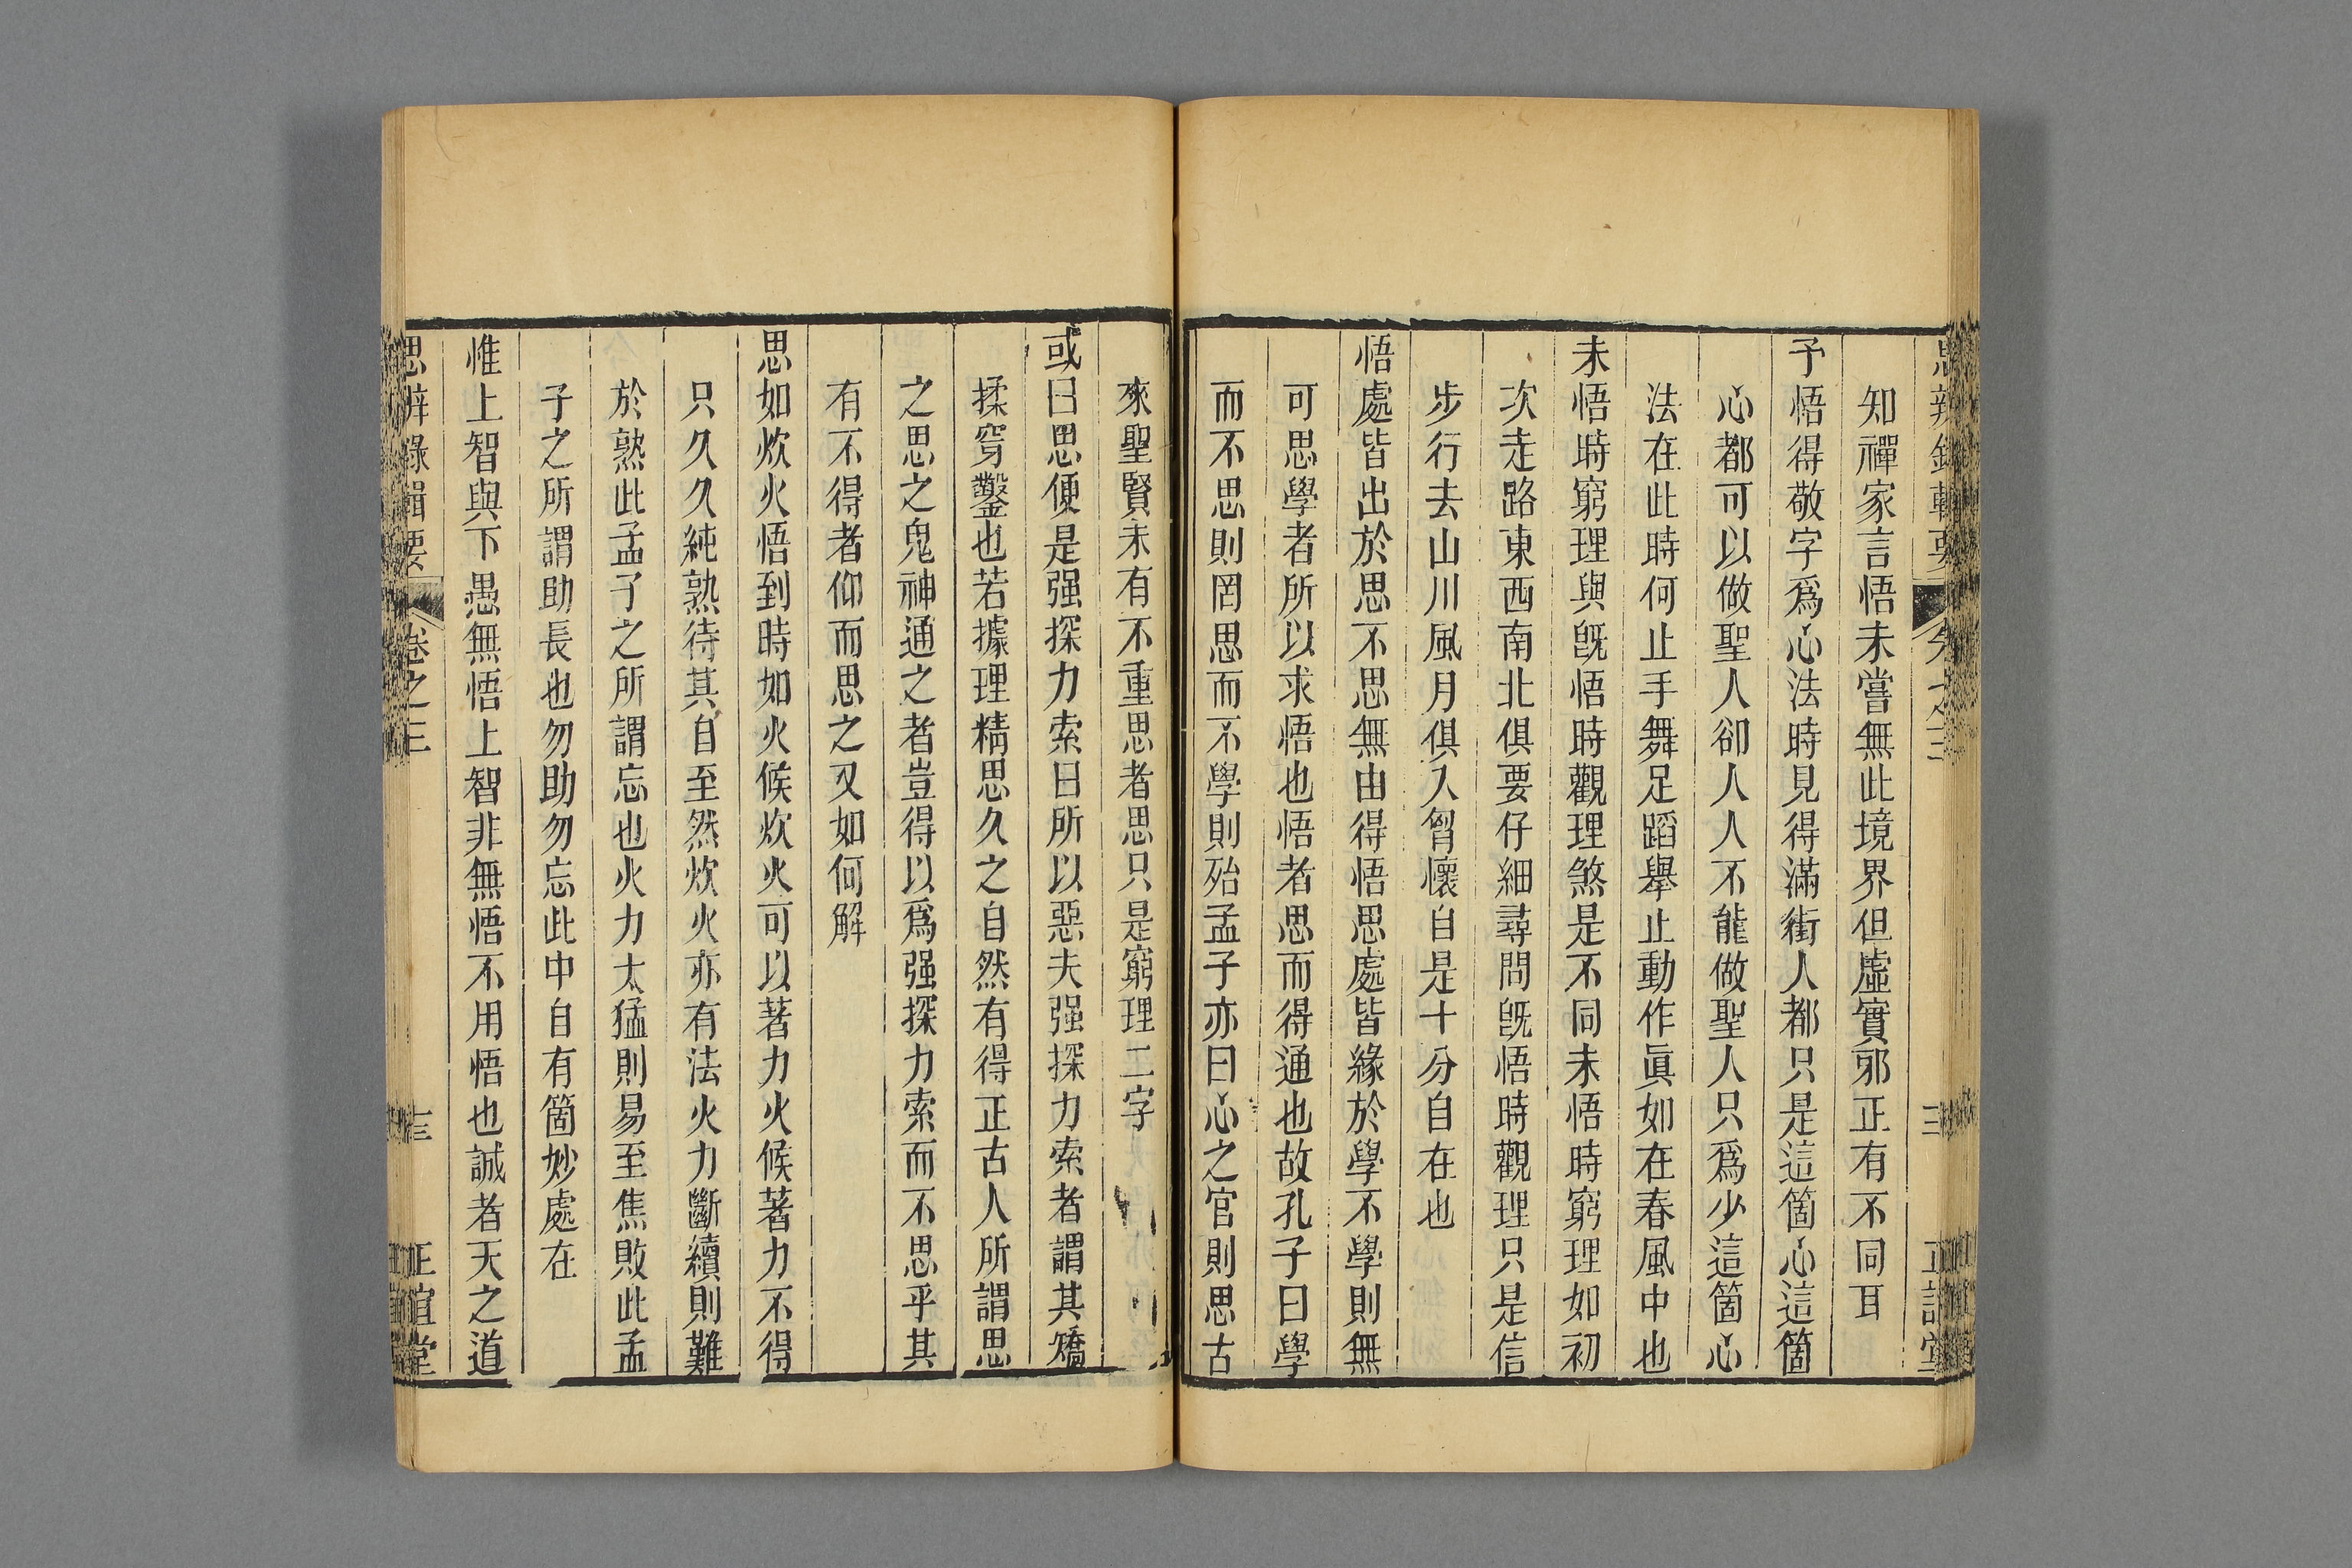 知禪家言悟未嘗無此境界但虛實邪正有不同耳
予悟得敬字爲心法時見得滿街人都只是這箇心這箇
心都可以做聖人卻人人不能做聖人只爲少這箇心
法在此時何止手舞足蹈舉止動作眞如在春風中也
未悟時窮理與旣悟時觀理煞是不同未悟時窮理如初
次走路東西南北俱要仔細尋問旣悟時觀理只是信
步行去山川風月俱入胷懷自是十分自在也
悟處皆出於思不思無由得悟思處皆緣於學不學則無
可思學者所以求悟也悟者思而得通也故孔子曰學
而不思則罔思而不學則殆孟子亦曰心之官則思古
來聖賢未有不重思者思只是窮理二字
或曰思便是强探力索曰所以惡夫强探力索者謂其矯
揉穿鑿也若據理精思久之自然有得正古人所謂思
之思之鬼神通之者豈得以爲强探力索而不思乎其
有不得者仰而思之又如何解
思如炊火悟到時如火候炊火可以著力火候著力不得
只久久純熟待其自至然炊火亦有法火力斷續則難
於熟此孟子之所謂忘也火力太猛則易至焦敗此孟
子之所謂助長也勿助勿忘此中自有箇妙處在
惟上智與下愚無悟上智非無悟不用悟也誠者天之道
思辨錄輯要 卷之三 正誼堂